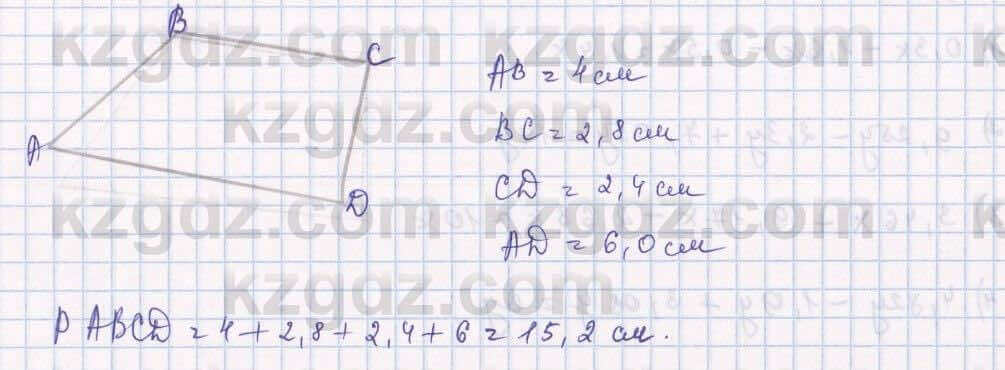 B
C
A
D
AB = 4 см
BC = 2,8 см
CD = 2,4 см
AD = 6,0 см
P ABCD = 4 + 2,8 + 2,4 + 6 = 15,2 см.
kzgdz.com kzgdz.com kzgdz.com
kzgdz.com kzgdz.com
kzgdz.com kzgdz.com kzgdz.com
kzgdz.com kzgdz.com